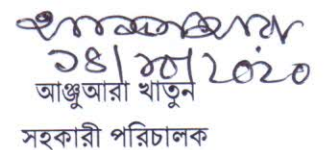 ১৪/১০/২০২০
আঞ্জুআরা খাতুন
সহকারী পরিচালক